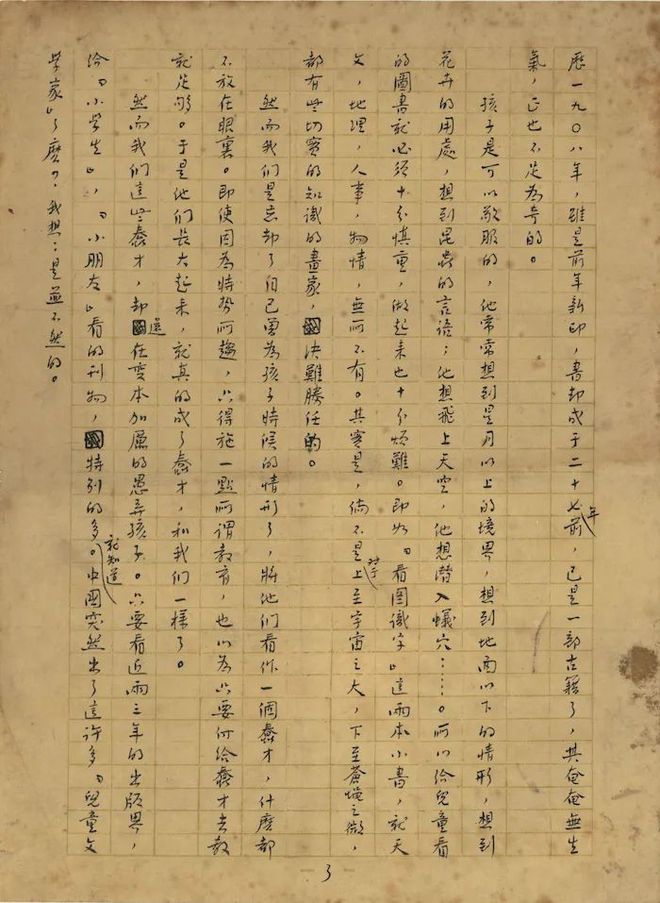 歷一九〇八年,雖是前年新印,書却成于二十七年前,已是一部古籍了,其奄奄無生
氣,正也不足為奇的。
孩子是可以敬服的,他常常想到星月以上的境界,想到地面以下的情形,想到
花卉的用處,想到昆蟲的言語;他想飛上天空,他想潛入蟻穴……。所以給兒童看
的圖書就必須十分慎重,做起來也十分煩難。即如『看圖識字』這兩本小書,就天
文,地理,人事,物情,無所不有。其實是,倘不是對上至宇宙之大,下至蒼蠅之微,
都有些切實的知識的畫家,決難勝任的。
然而我們是忘却了自己曾為孩子時候的情形了,將他們看作一個蠢才,什麼都
不放在眼裏。即使因為時勢所趨,只得施一點所謂教育,也以為只要付給蠢才去教
就足夠。于是他們長大起來,就真的成了蠢才,和我們一樣了。
然而我們這些蠢才,却還在變本加厲的愚弄孩子。只要看近兩三年的出版界,
給『小學生』,『小朋友』看的刊物,特別的多就知道。中國突然出了這許多『兒童文
學家』了麼?我想:是並不然的。
3